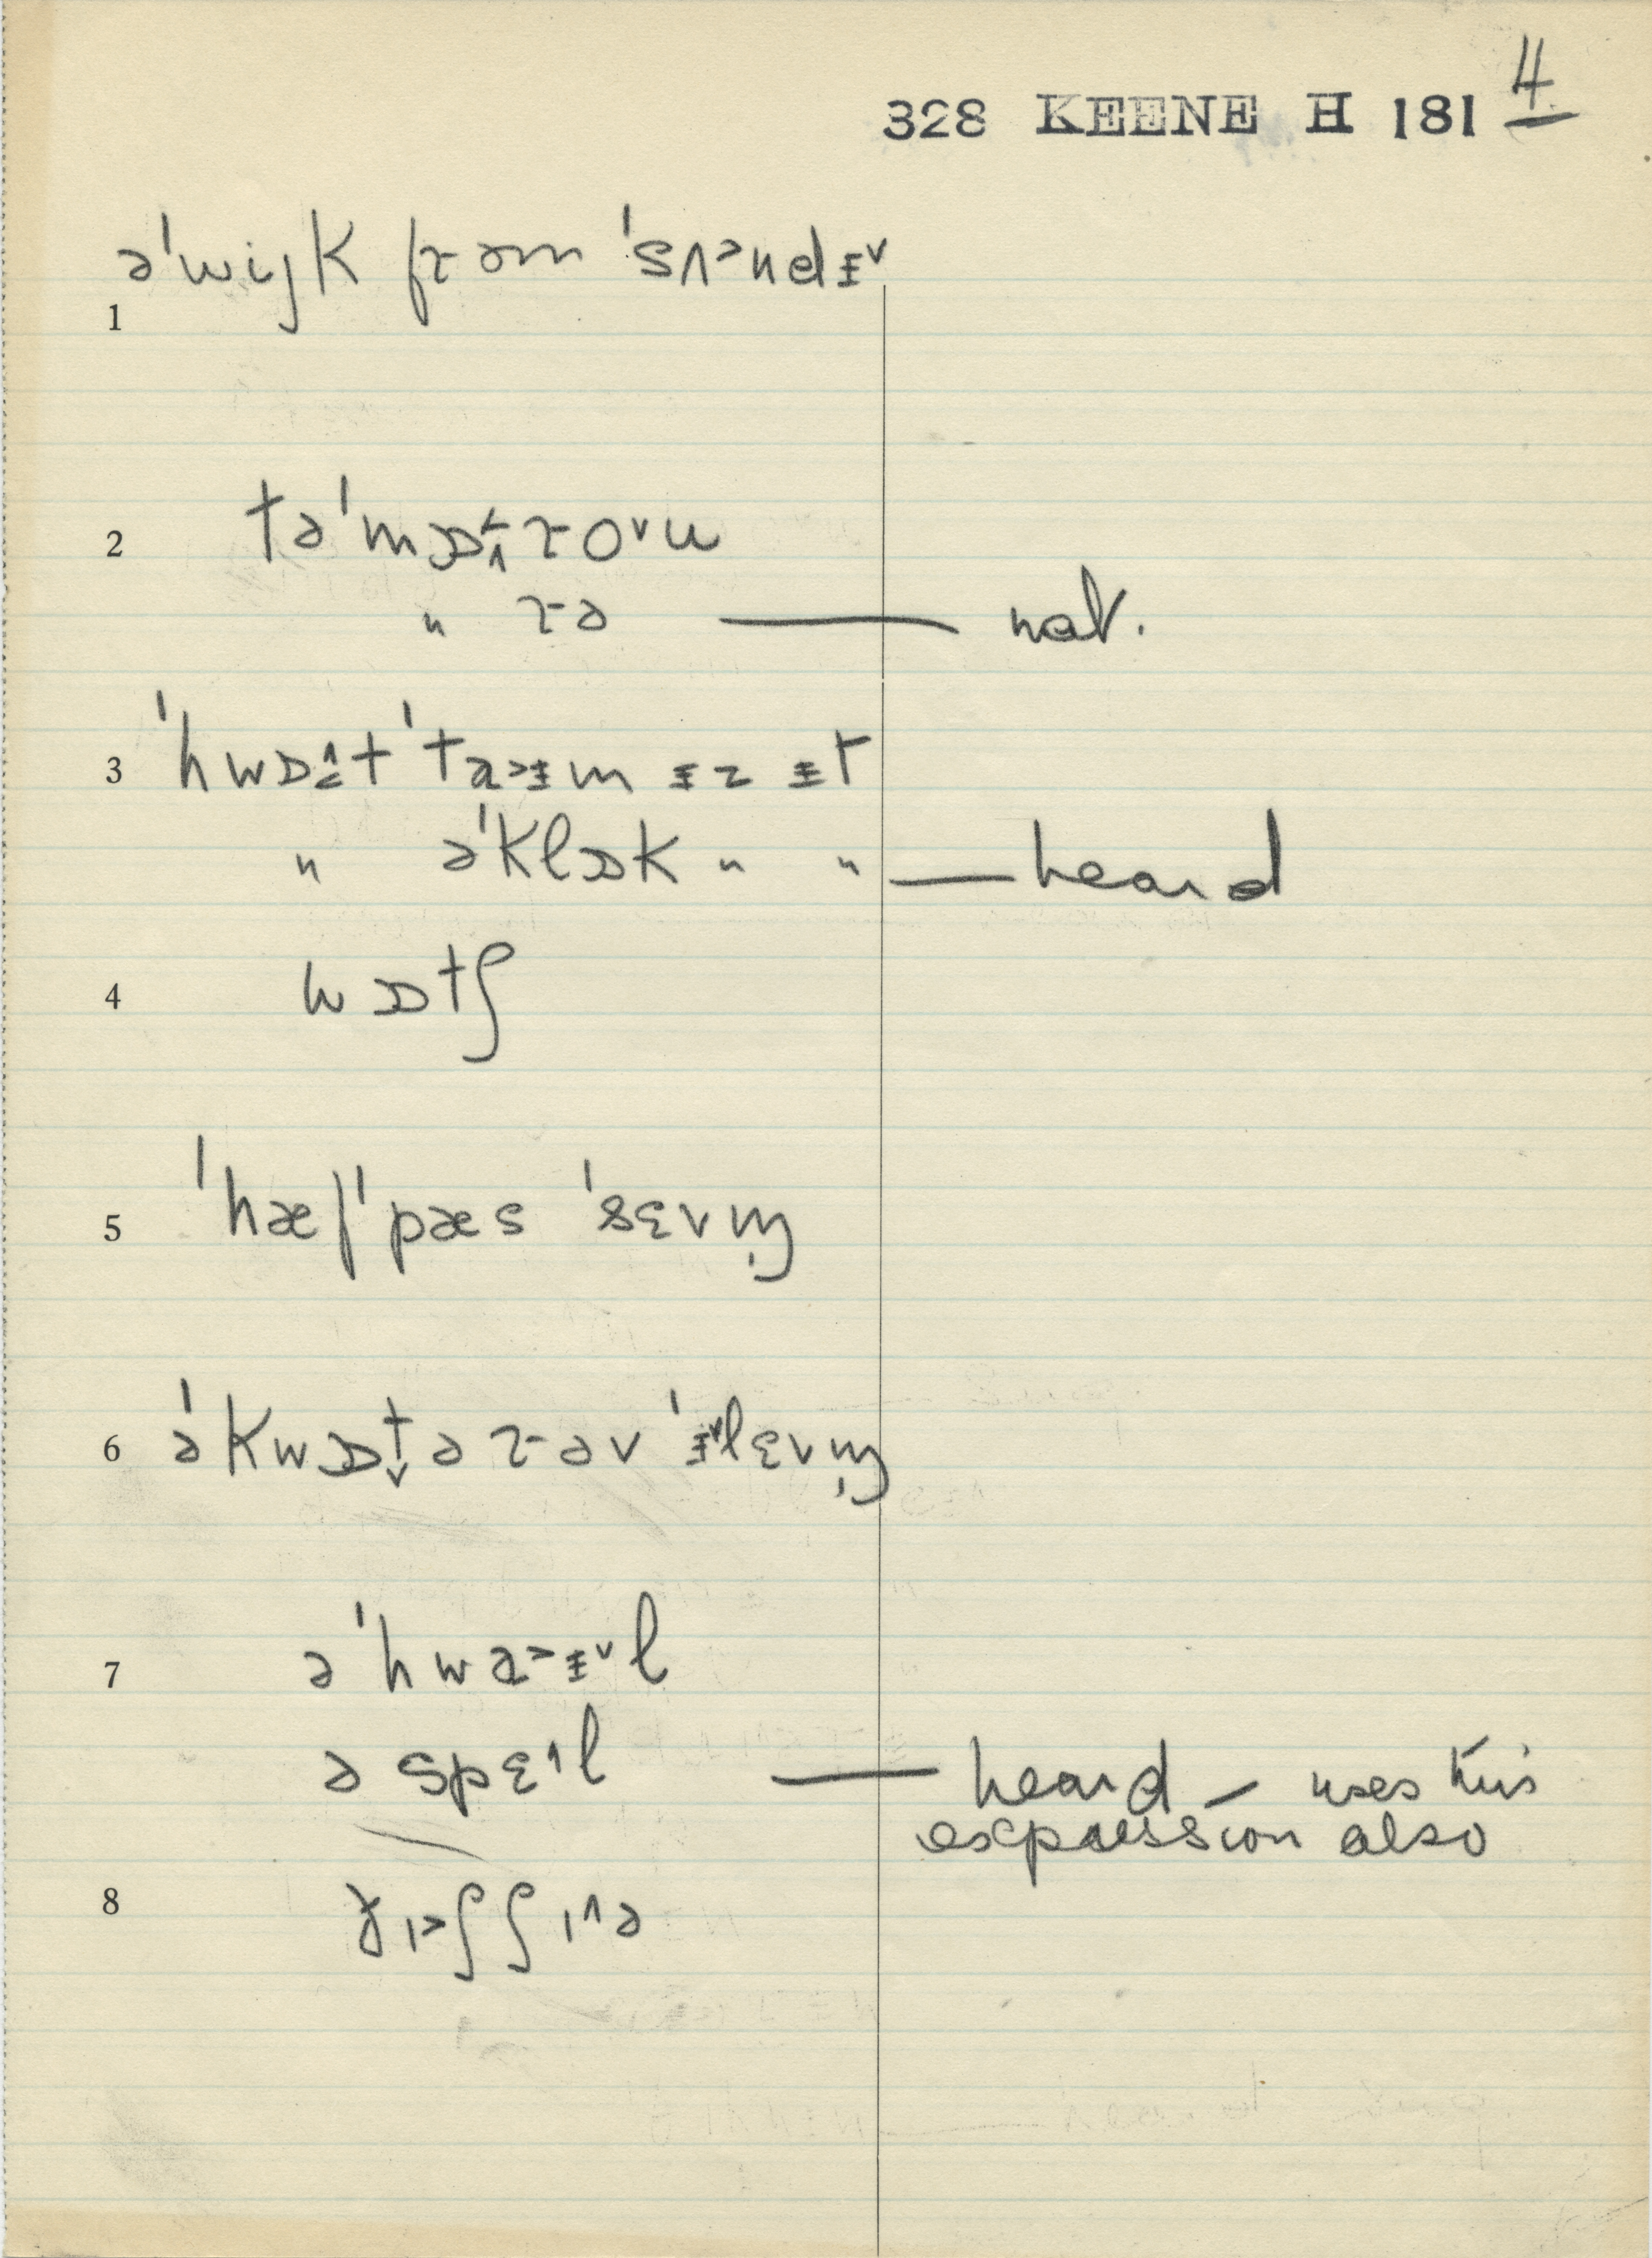 328 KEENE H 181 4
1 əˈwijk frəm ˈsʌ˃ndɨ˅
2 təˈmɒ˂˄ro˅u
" rə — nat.
3 ˈhwɒ˄˂t ˈta˃ɨm ɨz ɨt
" əˈklɒk " " — heard
4 wɒtʃ
5 ˈhæf ˈpæs ˈsɛvm̩
6 əˈkwɒt̬ərəv ˈɨ˅lɛvm̩
7 əˈhwa˃ɨ˅l
ə spɛ˄l — heard – uses this
expression also
8 ðɪ˃ʃ ʃɪ˄ə